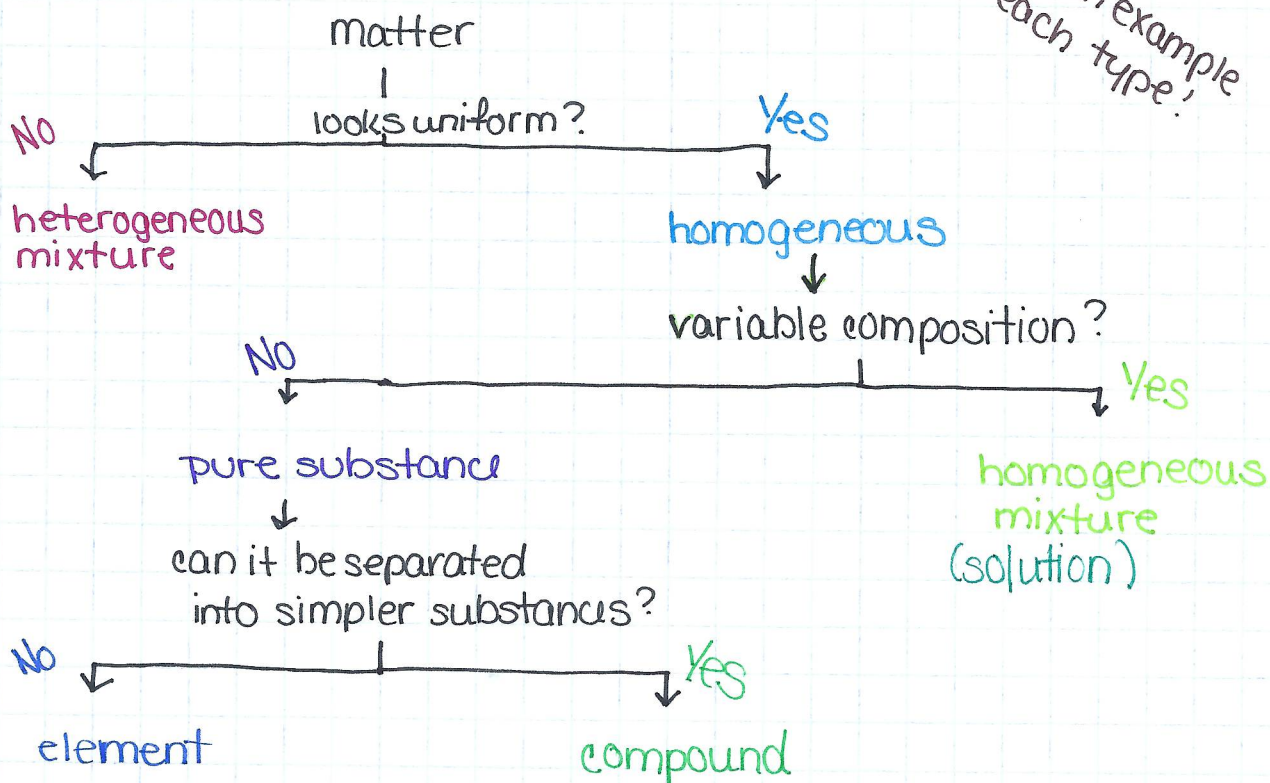 matter
example
each type!
looks uniform?
No
Yes
heterogeneous
mixture
homogeneous
variable composition?
No
Yes
pure substance
homogeneous
mixture
(solution)
can it be separated
into simpler substances?
No
Yes
element
compound